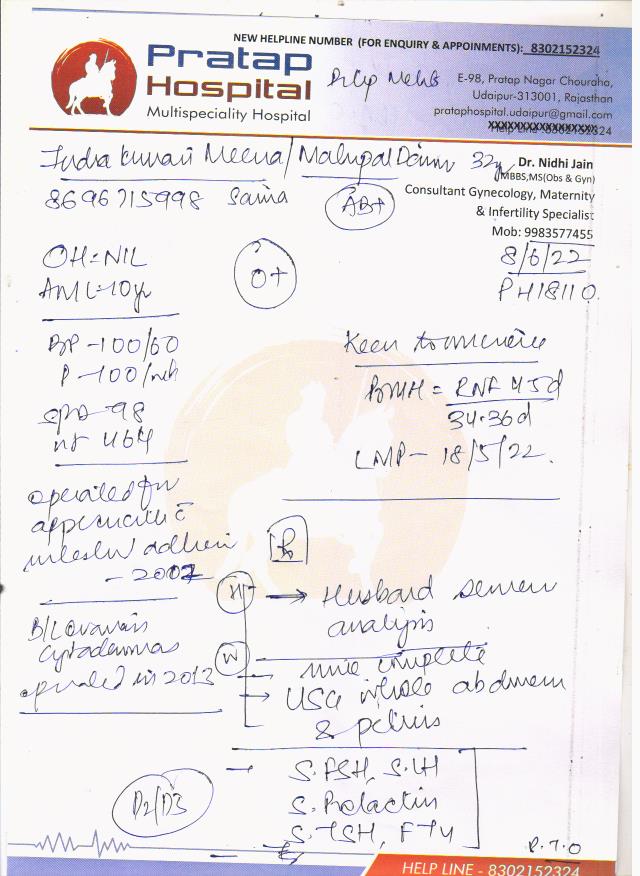 NEW HELPLINE NUMBER (FOR ENQUIRY & APPOINMENTS): 8302152324
Pratap
Hospital
Multispeciality Hospital
E-98, Pratap Nagar Chouraha,
Udaipur-313001, Rajasthan
prataphospital.udaipur@gmail.com
Help Line 8302152324
Indra kumari Meena / 32y
8696715998
AB+
Dr. Nidhi Jain
MBBS,MS(Obs & Gyn)
Consultant Gynecology, Maternity
& Infertility Specialist
Mob: 9983577455
8/6/22
PH18110
OH=NIL
AML=10yr
? O+
BP-100/60
P-100/
98
Keen to conceive
RNF 45d
34-36d
LMP - 18/5/22.
operated for
- 2007
B/L ovarian
operated in 2013
Rx
H → Husband semen
analysis
W
urine complete
→ USG whole abdomen
& pelvis
D2/D3
- S.FSH, S.LH
S.Prolactin
S.TSH, FT4
P.T.O
HELP LINE - 8302152324